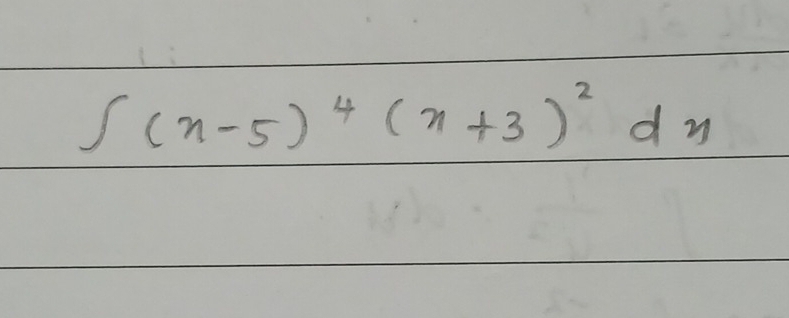 ∫ (x-5)⁴ (x+3)² dx